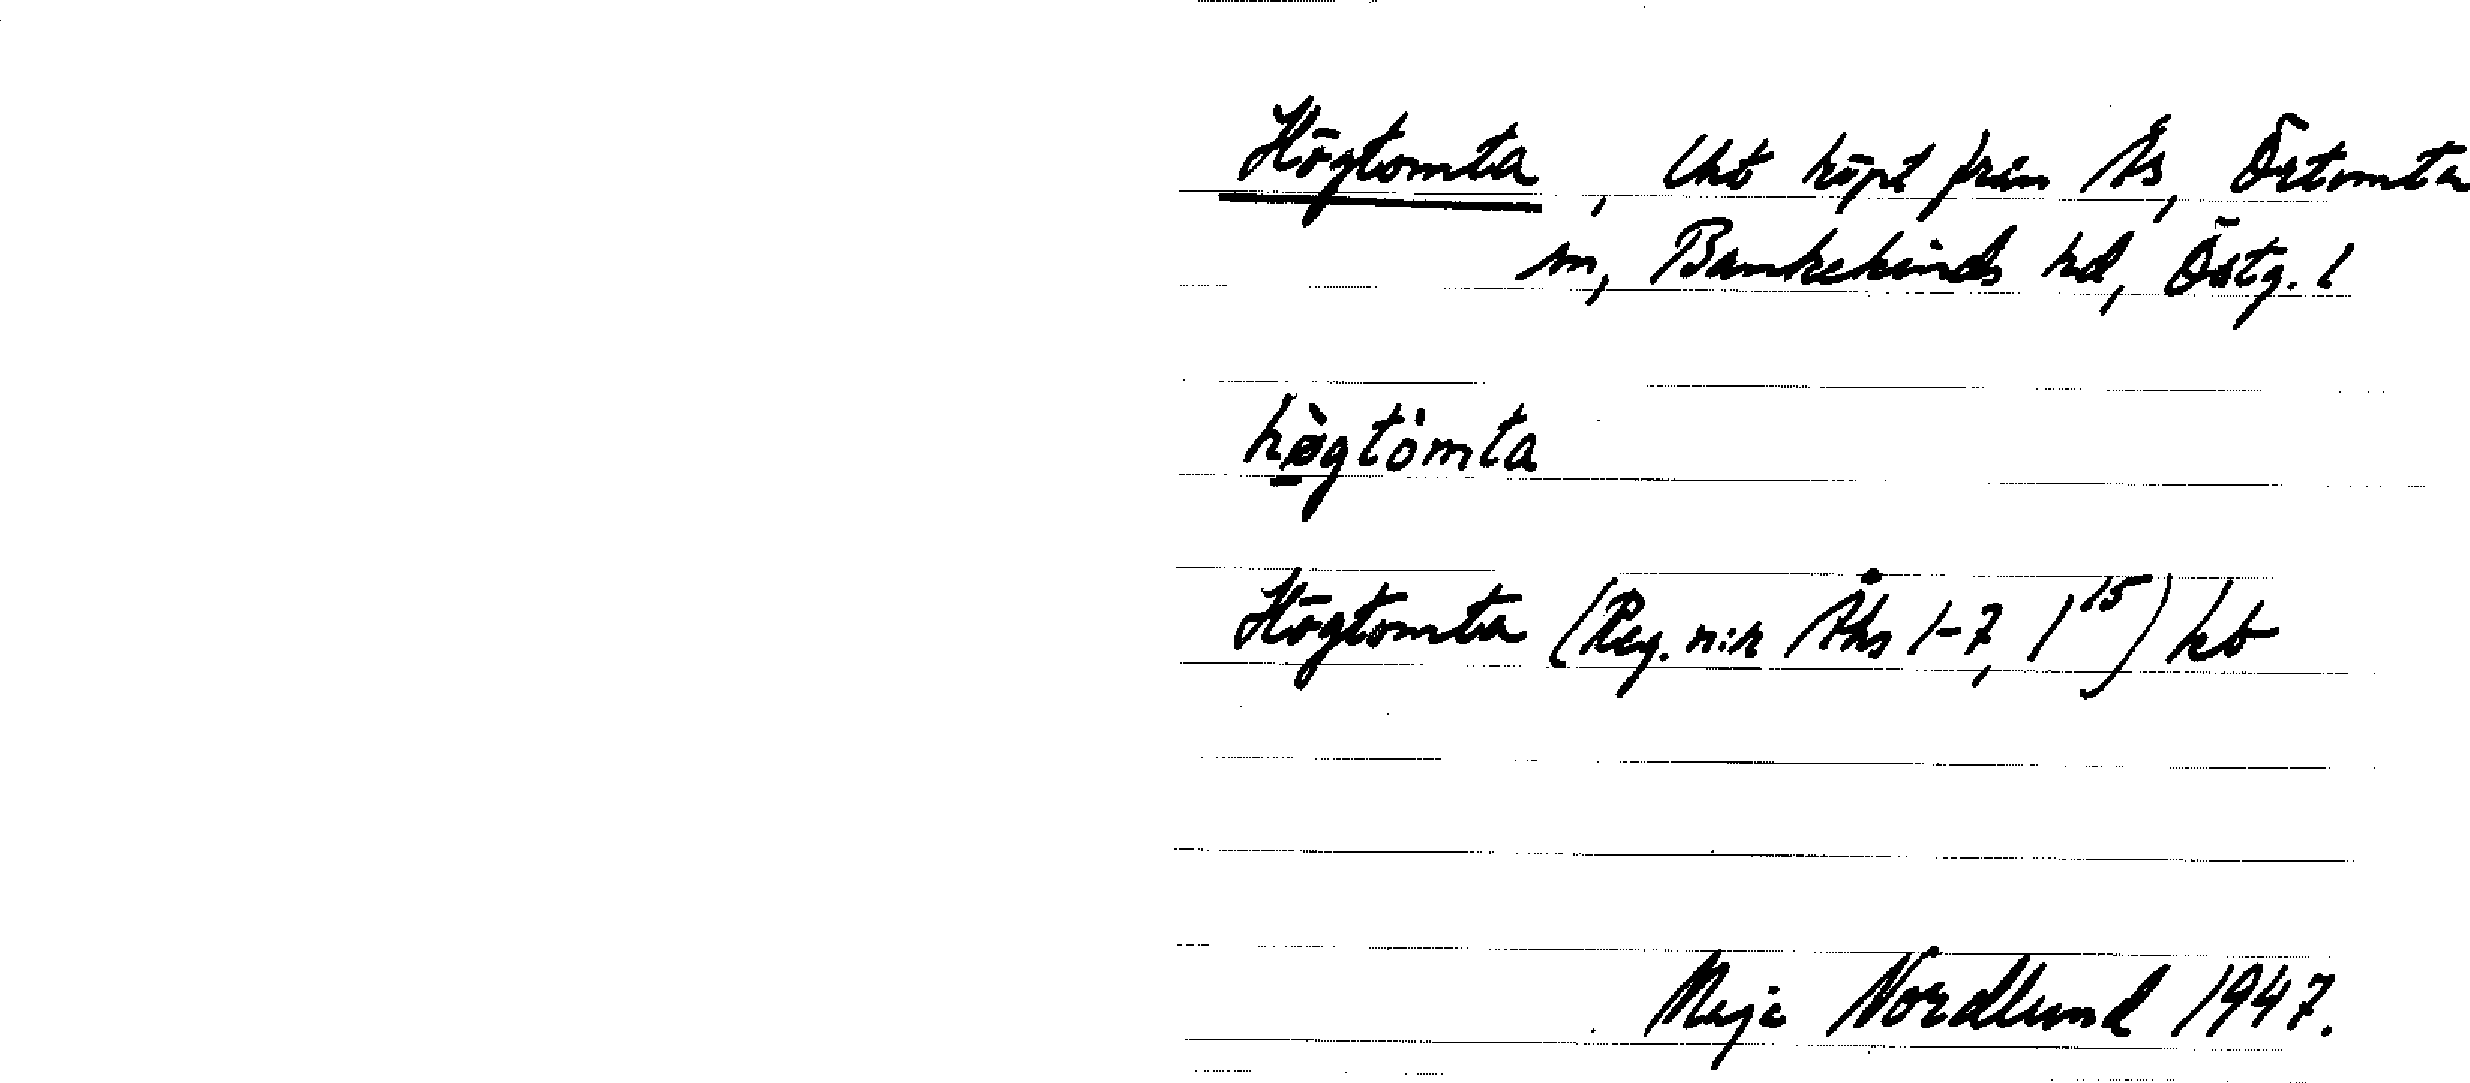 Högtomta, lht köpt från Ås, Örtomta
sn, Bankekinds hd, Östg. l
hø̀gtòmta
Högtomta (Reg. n:r Åhs 1-7, 1¹⁵) ht
Maja Nordlund 1947.